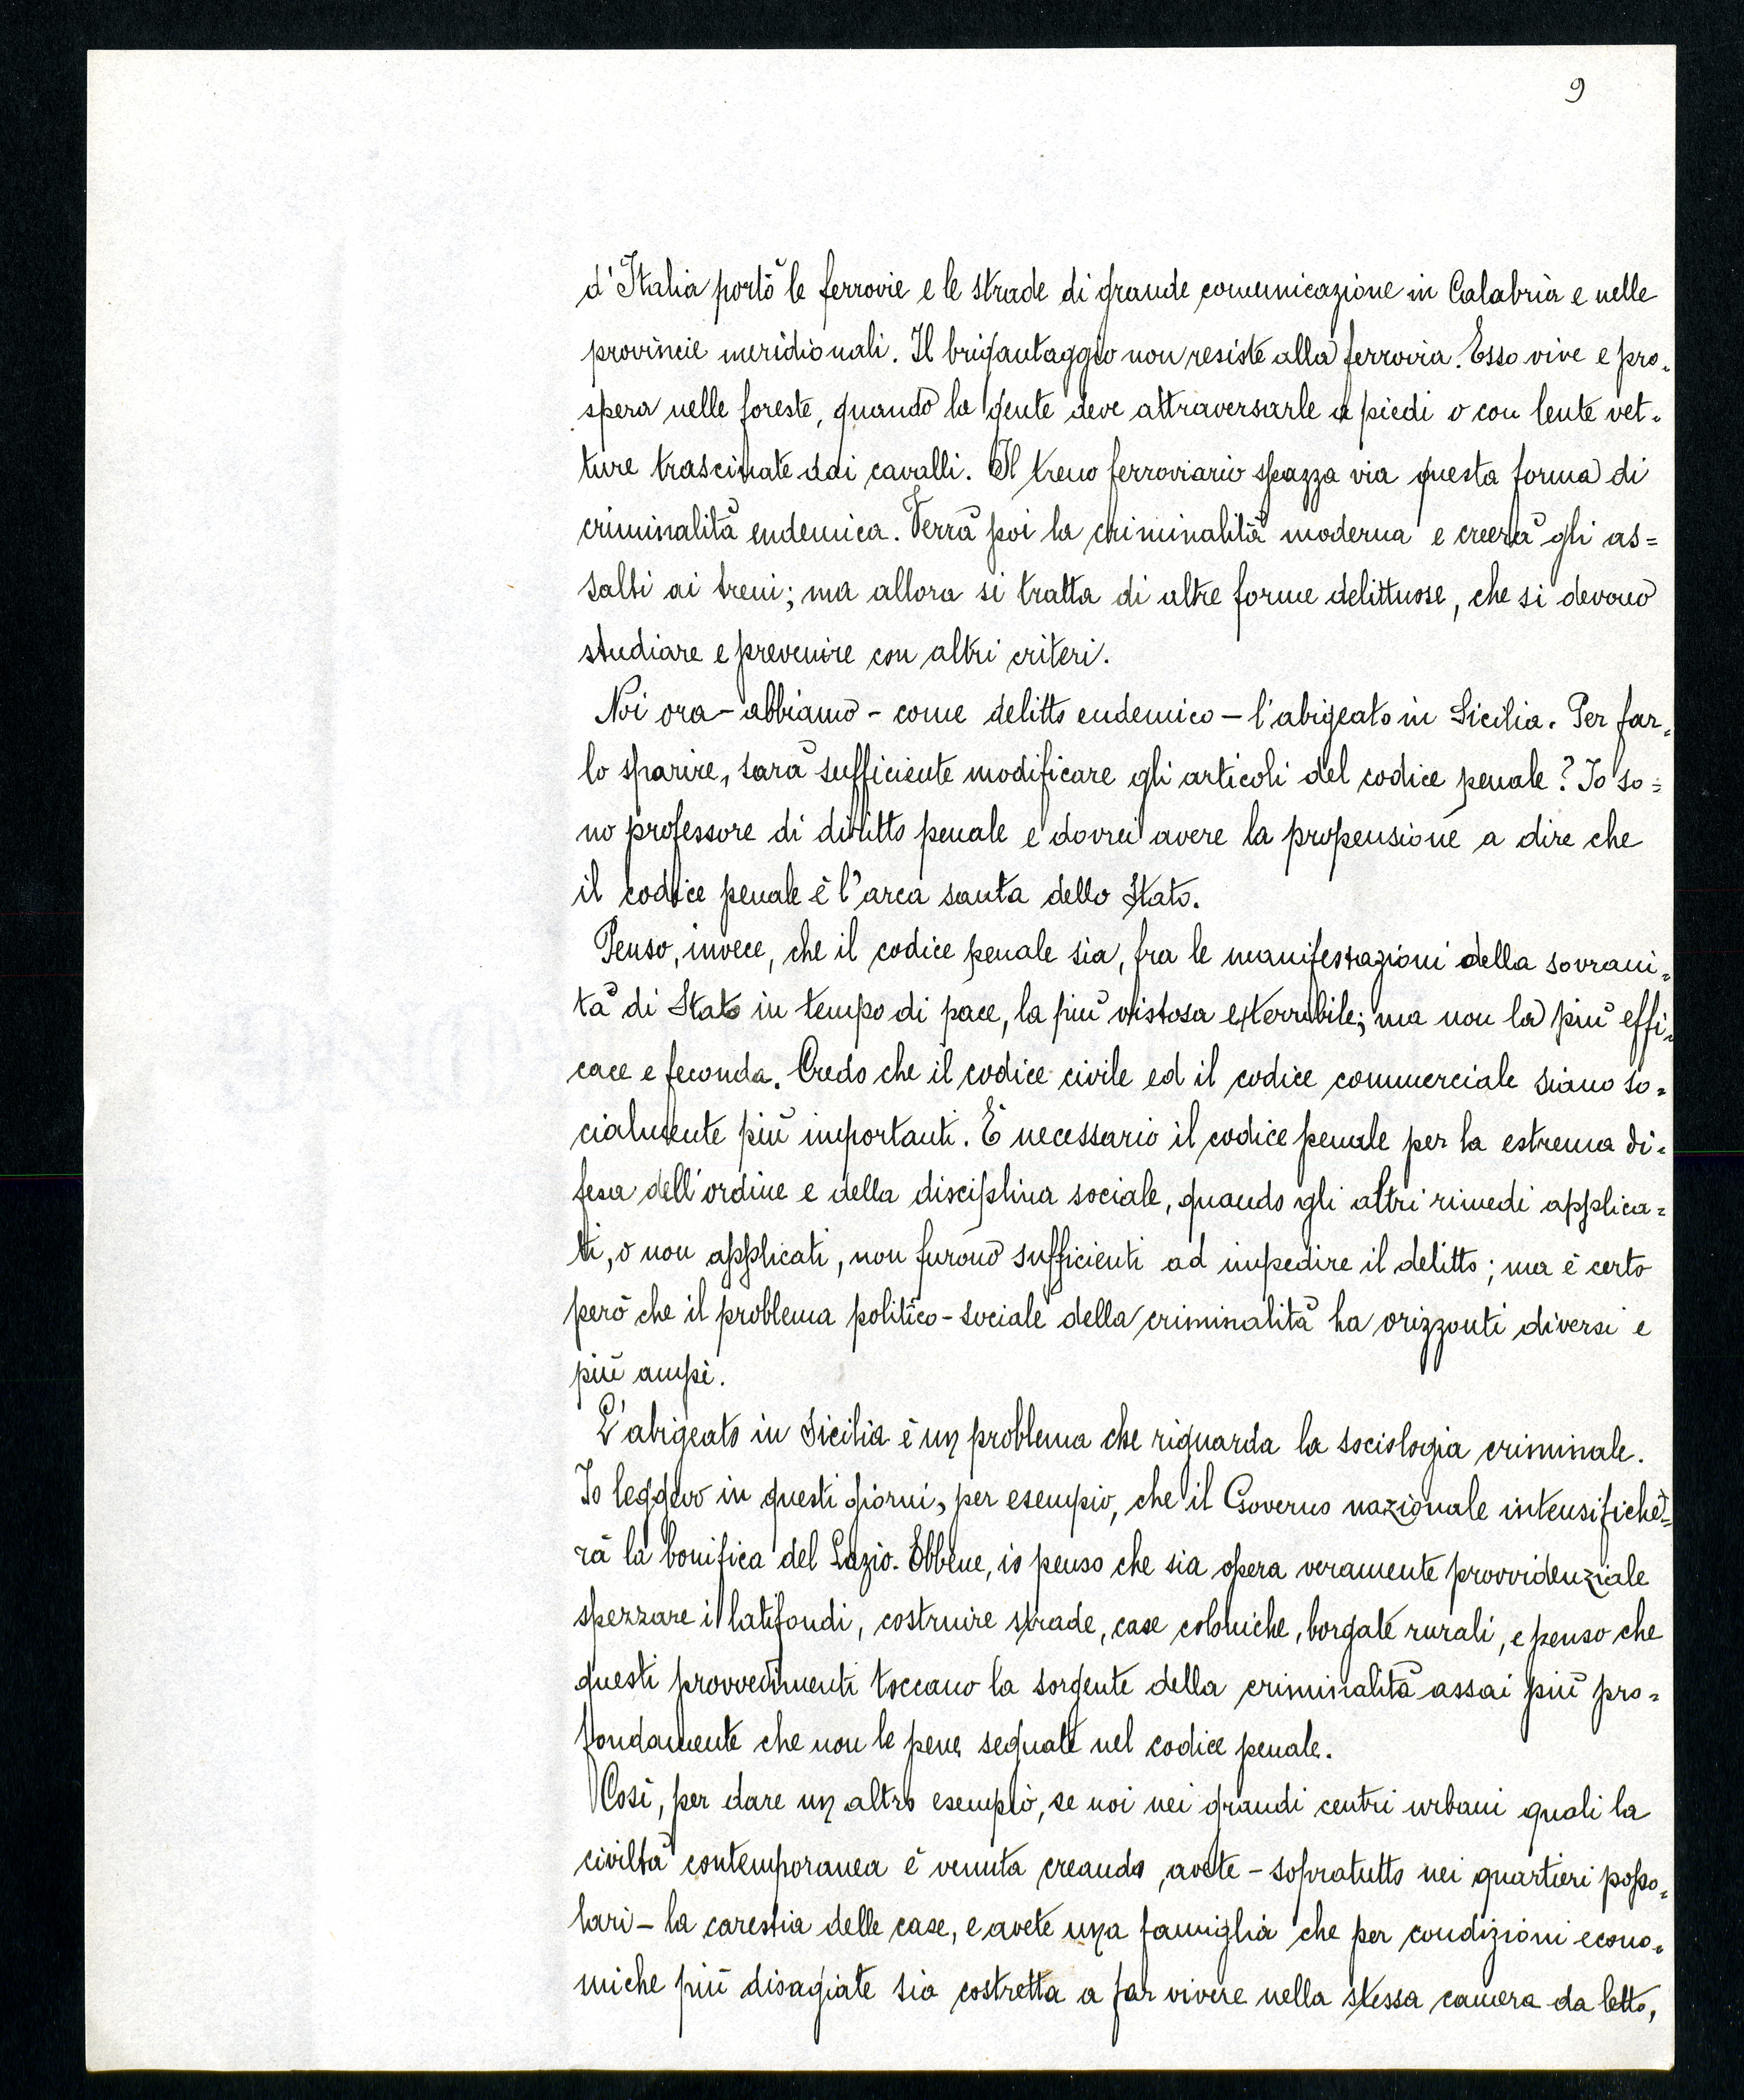 9
d'Italia portò le ferrovie e le strade di grande comunicazione in Calabria e nelle
provincie meridionali. Il brigantaggio non resiste alla ferrovia. Esso vive e pro-
spera nelle foreste, quando la gente deve attraversarle a piedi o con lente vet-
ture trascinate dai cavalli. Il treno ferroviario spazza via questa forma di
criminalità endemica. Verrà poi la criminalità moderna e creerà gli as=
salti ai treni; ma allora si tratta di altre forme delittuose, che si devono
studiare e prevenire con altri criteri.
Noi ora - abbiamo - come delitto endemico - l'abigeato in Sicilia. Per far-
lo sparire, sarà sufficiente modificare gli articoli del codice penale? Io so=
no professore di diritto penale e dovrei avere la propensione a dire che
il codice penale è l'arca santa dello Stato.
Penso, invece, che il codice penale sia, fra le manifestazioni della sovrani-
tà di Stato in tempo di pace, la più vistosa e terribile; ma non la più effi-
cace e feconda. Credo che il codice civile ed il codice commerciale siano so-
cialmente più importanti. È necessario il codice penale per la estrema di-
fesa dell'ordine e della disciplina sociale, quando gli altri rimedi applica=
ti, o non applicati, non furono sufficienti ad impedire il delitto; ma è certo
però che il problema politico-sociale della criminalità ha orizzonti diversi e
più ampi.
L'abigeato in Sicilia è un problema che riguarda la sociologia criminale.
Io leggevo in questi giorni, per esempio, che il Governo nazionale intensifiche=
rà la bonifica del Lazio. Ebbene, io penso che sia opera veramente provvidenziale
spezzare i latifondi, costruire strade, case coloniche, borgate rurali, e penso che
questi provvedimenti toccano la sorgente della criminalità assai più pro=
fondamente che non le pene segnate nel codice penale.
Così, per dare un altro esempio, se noi nei grandi centri urbani quali la
civiltà contemporanea è venuta creando, avete - sopratutto nei quartieri popo-
lari - la carestia delle case, e avete una famiglia che per condizioni econo-
miche più disagiate sia costretta a far vivere nella stessa camera da letto,